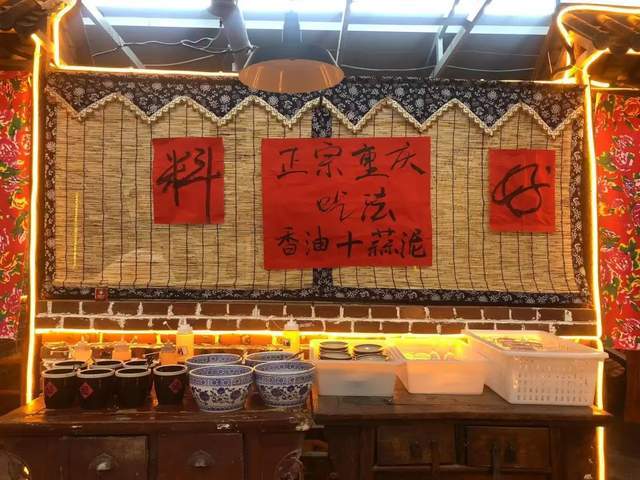 料
正宗重庆
吃法
香油十蒜泥
好